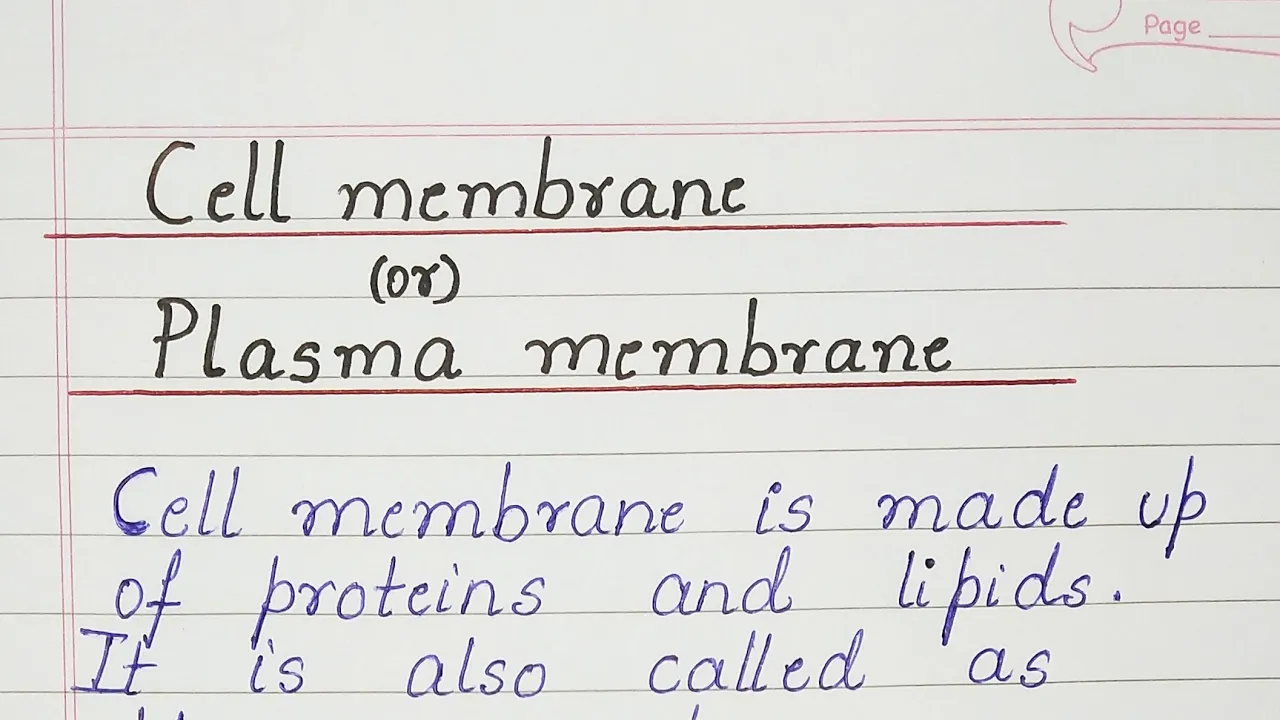 Page
Cell membrane
(or)
Plasma membrane
Cell membrane is made up
of proteins and lipids.
It is also called as